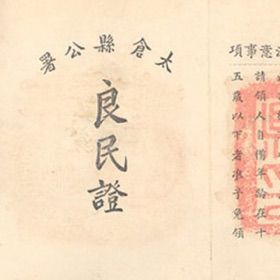 太倉縣公署
良民證
注意事項
請領人自備年齡在十
五歲以下者准予免領